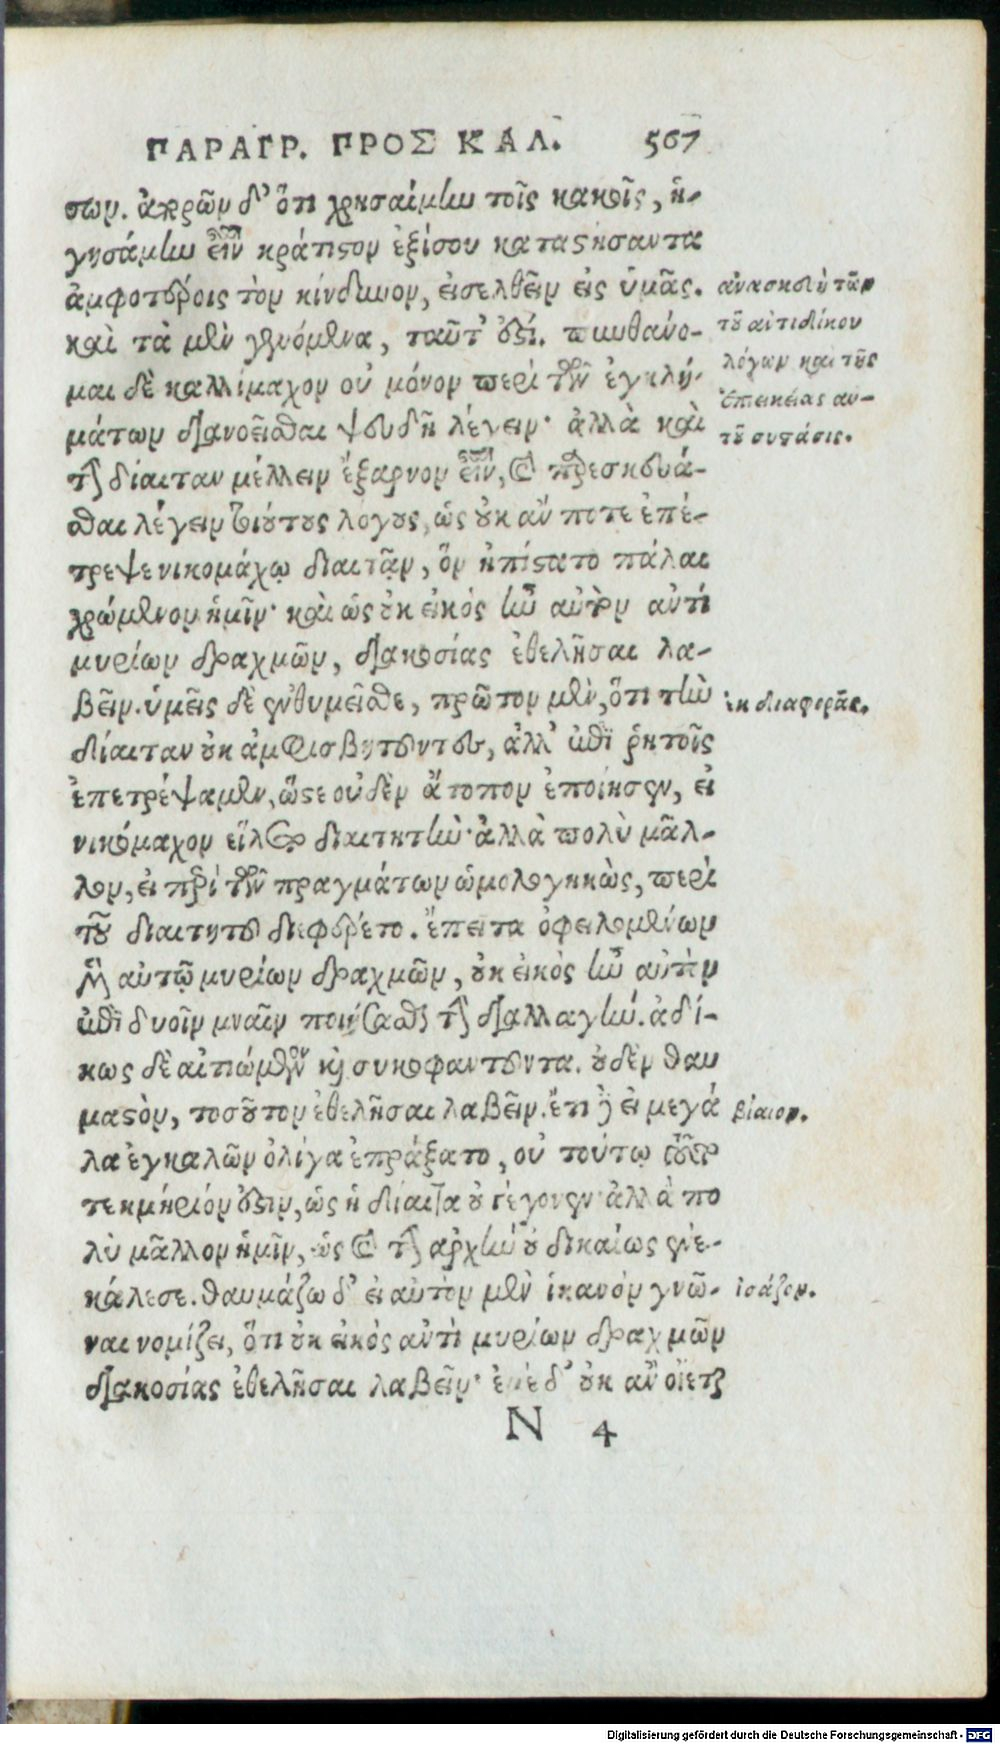 ΠΑΡΑΓΡ. ΠΡΟΣ ΚΑΛ. 567
σων. ἀπορῶν δ' ὅτι χρησαίμην τοῖς κακοῖς, ἡ-
γησάμην εἶναι κράτιστον ἐξίσου καταστήσαντα
ἀμφοτέροις τὸν κίνδυνον, εἰσελθεῖν εἰς ὑμᾶς.
καὶ τὰ μὲν γενόμενα, ταῦτ' ἐστί. πυνθάνο-
μαι δὲ καλλίμαχον οὐ μόνον περὶ τῶν ἐγκλη-
μάτων διανοεῖσθαι ψευδῆ λέγειν· ἀλλὰ καὶ
τὴν δίαιταν μέλλειν ἔξαρνον εἶναι, καὶ παρεσκευά-
σθαι λέγειν τοιούτους λόγους, ὡς οὐκ ἄν ποτε ἐπέ-
τρεψε νικομάχῳ διαιτᾷν, ὃν ἠπίστατο πάλαι
χρώμενον ἡμῖν· καὶ ὡς οὐκ εἰκὸς ἦν αὐτὸν ἀντὶ
μυρίων δραχμῶν, διακοσίας ἐθελῆσαι λα-
βεῖν. ὑμεῖς δὲ ἐνθυμεῖσθε, πρῶτον μὲν, ὅτι τὴν
δίαιταν οὐκ ἀμφισβητοῦντες, ἀλλ' ἐπὶ ῥητοῖς
ἐπετρέψαμεν, ὥστε οὐδὲν ἄτοπον ἐποίησεν, εἰ
νικόμαχον εἵλετο διαιτητὴν· ἀλλὰ πολὺ μᾶλ-
λον, εἰ περὶ τῶν πραγμάτων ὡμολογηκὼς, περὶ
τοῦ διαιτητοῦ διεφέρετο. ἔπειτα ὀφειλομένων
μὲν αὐτῷ μυρίων δραχμῶν, οὐκ εἰκὸς ἦν αὐτὸν
ἐπὶ δυοῖν μναῖν ποιήσασθαι τὴν διαλλαγήν. ἀδί-
κως δὲ αἰτιώμενον καὶ συκοφαντοῦντα. οὐδὲν θαυ
μαστὸν, τοσοῦτον ἐθελῆσαι λαβεῖν. ἔτι δὲ εἰ μεγά
λα ἐγκαλῶν ὀλίγα ἐπράξατο, οὐ τούτῳ τοῦτο
τεκμήριόν ἐστιν, ὡς ἡ δίαιτα οὐ γέγονεν· ἀλλὰ πο
λὺ μᾶλλον ἡμῖν, ὡς καὶ τὴν ἀρχὴν οὐ δικαίως ἐνε-
κάλεσε. θαυμάζω δ' εἰ αὐτὸν μὲν ἱκανὸν γνῶ-
ναι νομίζει, ὅτι οὐκ εἰκὸς ἀντὶ μυρίων δραχμῶν
διακοσίας ἐθελῆσαι λαβεῖν· ἐμὲ δ' οὐκ ἂν οἴεται
Ν 4
ἀνασκευὴ τῶν
τοῦ ἀντιδίκου
λόγων καὶ τῆς
ἐπιεικείας αυ-
τοῦ συστάσις.
ἐκ διαφορᾶς.
βίαιον.
ἰσάζον.
Digitalisierung gefördert durch die Deutsche Forschungsgemeinschaft - DFG